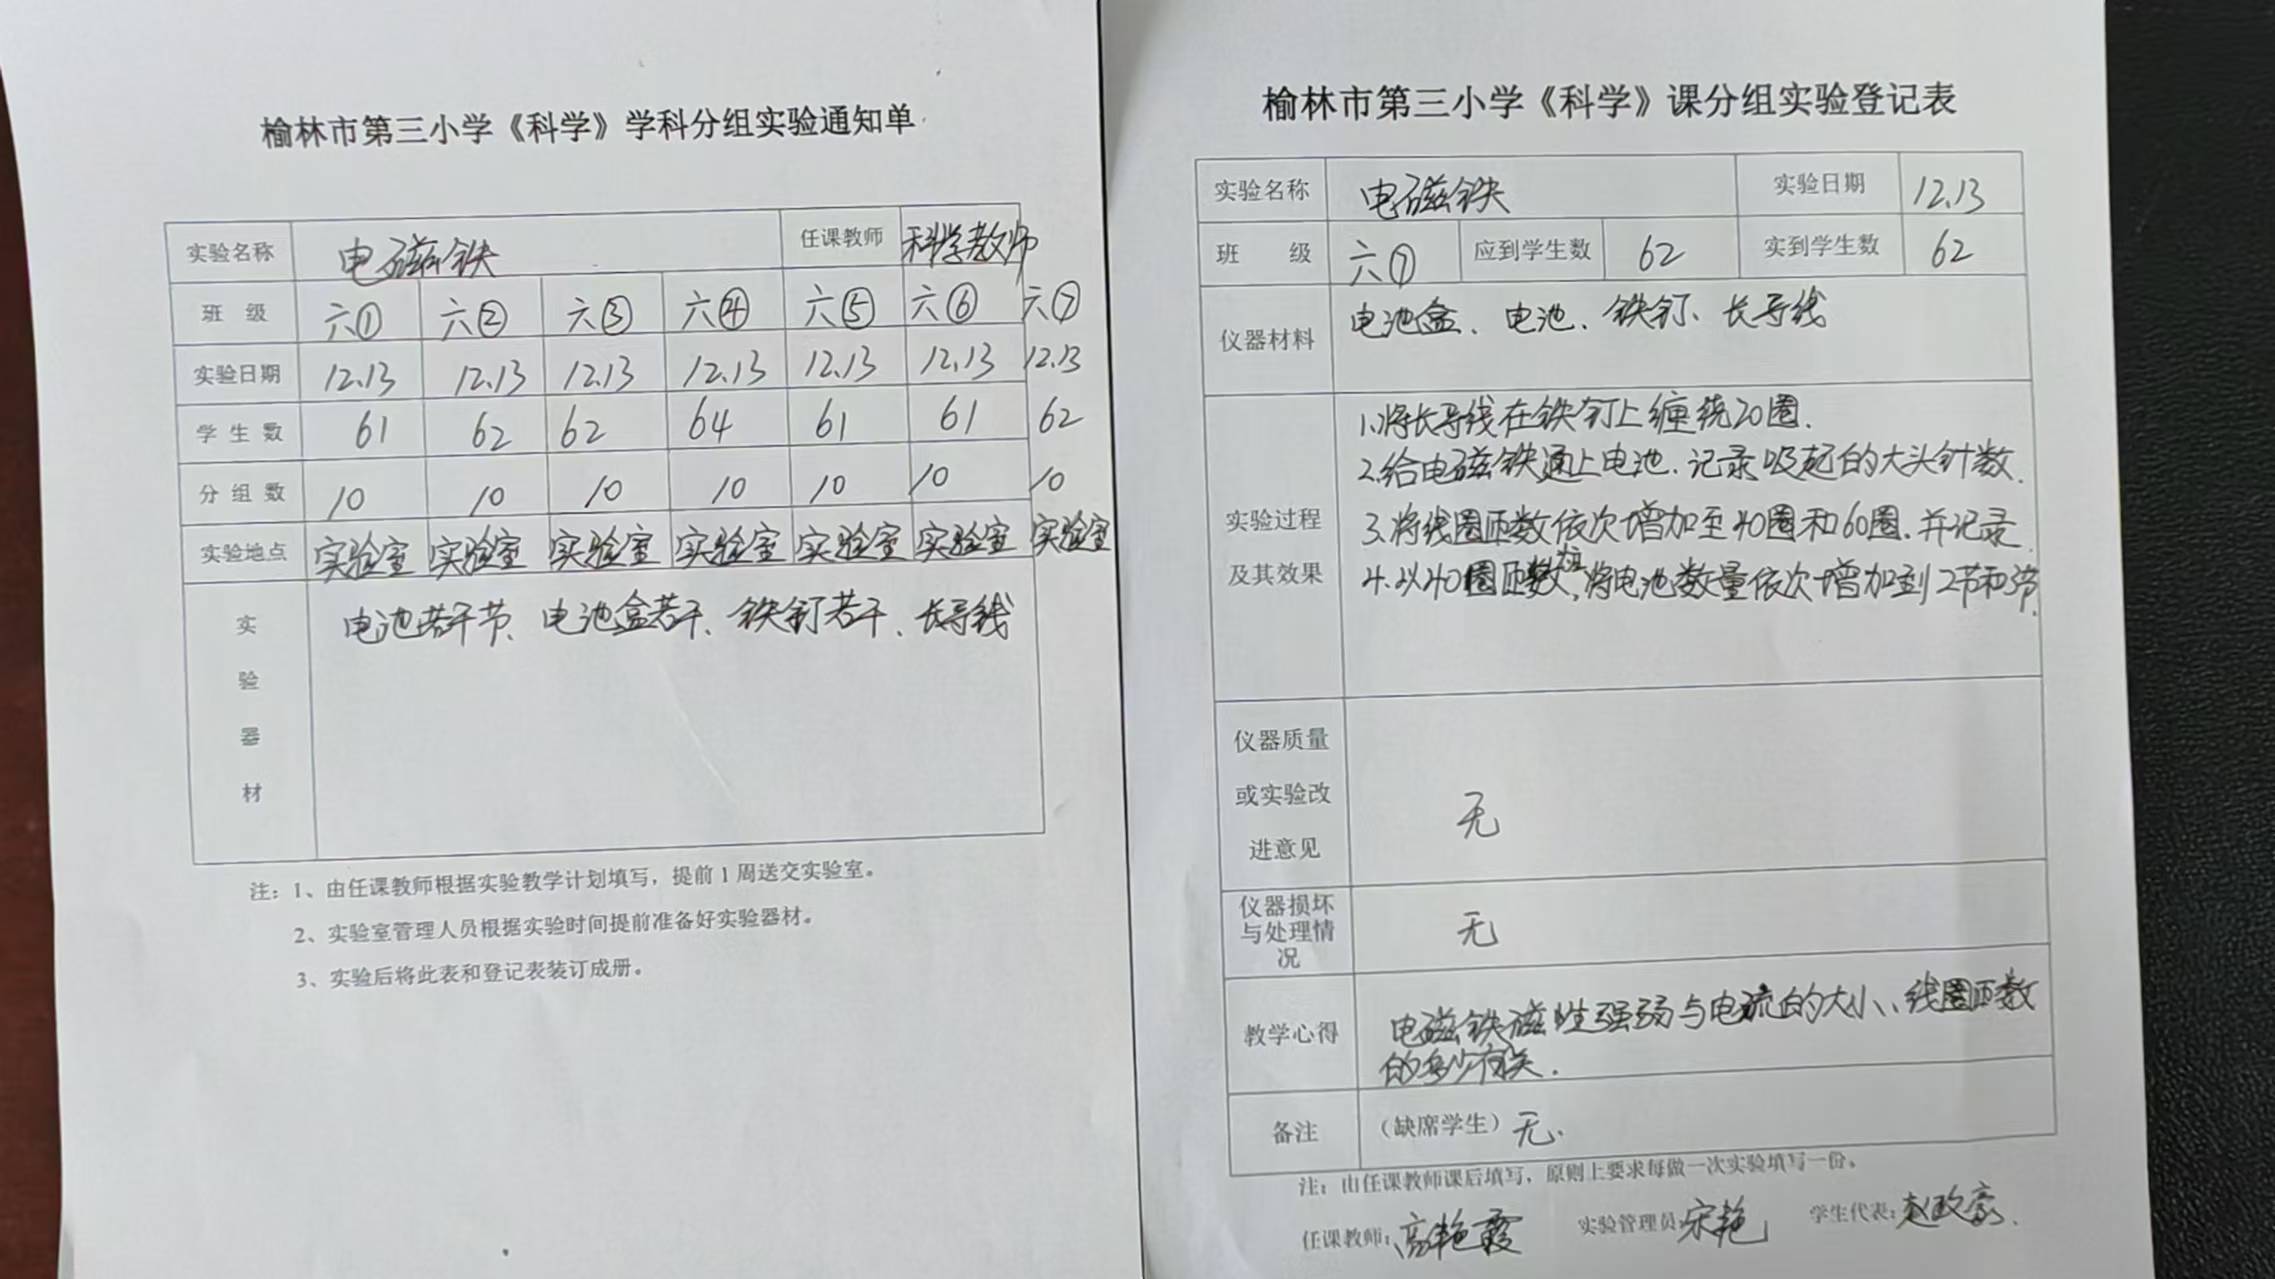 榆林市第三小学《科学》学科分组实验通知单
实验名称 电磁铁 任课教师 科学教师
班 级 六① 六② 六③ 六④ 六⑤ 六⑥ 六⑦
实验日期 12.13 12.13 12.13 12.13 12.13 12.13 12.13
学 生 数 61 62 62 64 61 61 62
分 组 数 10 10 10 10 10 10 10
实验地点 实验室 实验室 实验室 实验室 实验室 实验室 实验室
实验器材 电池若干节、电池盒若干、铁钉若干、长导线
注：1、由任课教师根据实验教学计划填写，提前1周送交实验室。
2、实验室管理人员根据实验时间提前准备好实验器材。
3、实验后将此表和登记表装订成册。
榆林市第三小学《科学》课分组实验登记表
实验名称 电磁铁 实验日期 12.13
班 级 六⑦ 应到学生数 62 实到学生数 62
仪器材料 电池盒、电池、铁钉、长导线
实验过程
及其效果
1.将长导线在铁钉上缠绕20圈.
2.给电磁铁通上电池.记录吸起的大头针数.
3.将线圈匝数依次增加至40圈和60圈.并记录.
4.以40圈匝数,将电池数量依次增加到2节和3节.
仪器质量
或实验改
进意见
无
仪器损坏
与处理情
况
无
教学心得
电磁铁磁性强弱与电流的大小、线圈匝数
的多少有关.
备注 （缺席学生）无.
注：由任课教师课后填写，原则上要求每做一次实验填写一份。
任课教师：高艳霞 实验管理员：宋艳 学生代表：赵政豪